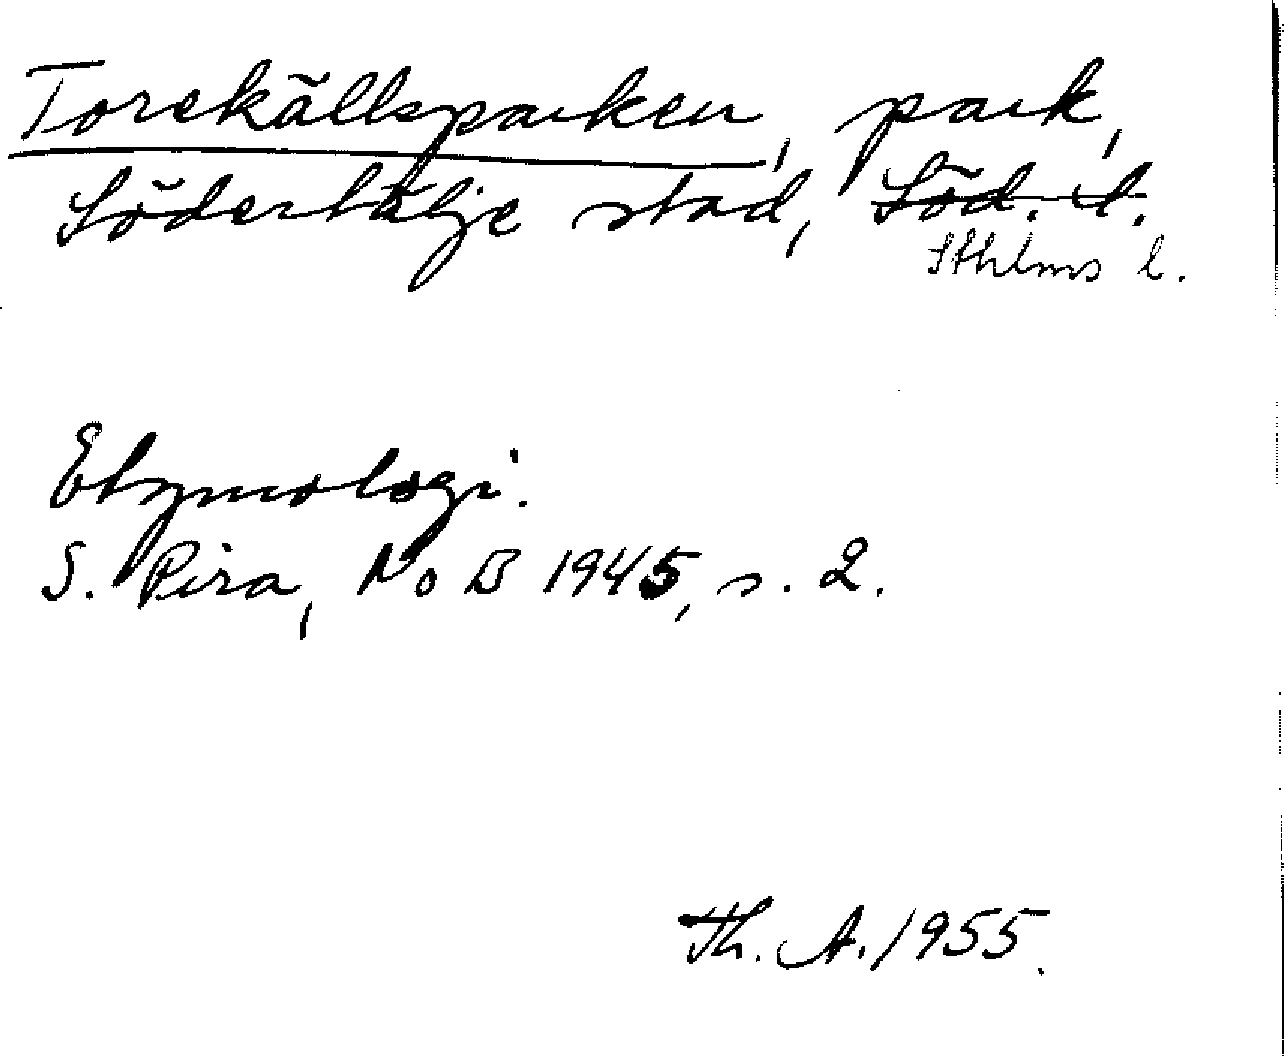 Torekällsparken, park,
Södertälje stad, Söd. l.
Sthlms l.
Etymologi.
S. Pira, NoB 1945, s. 2.
Th. A. 1955.